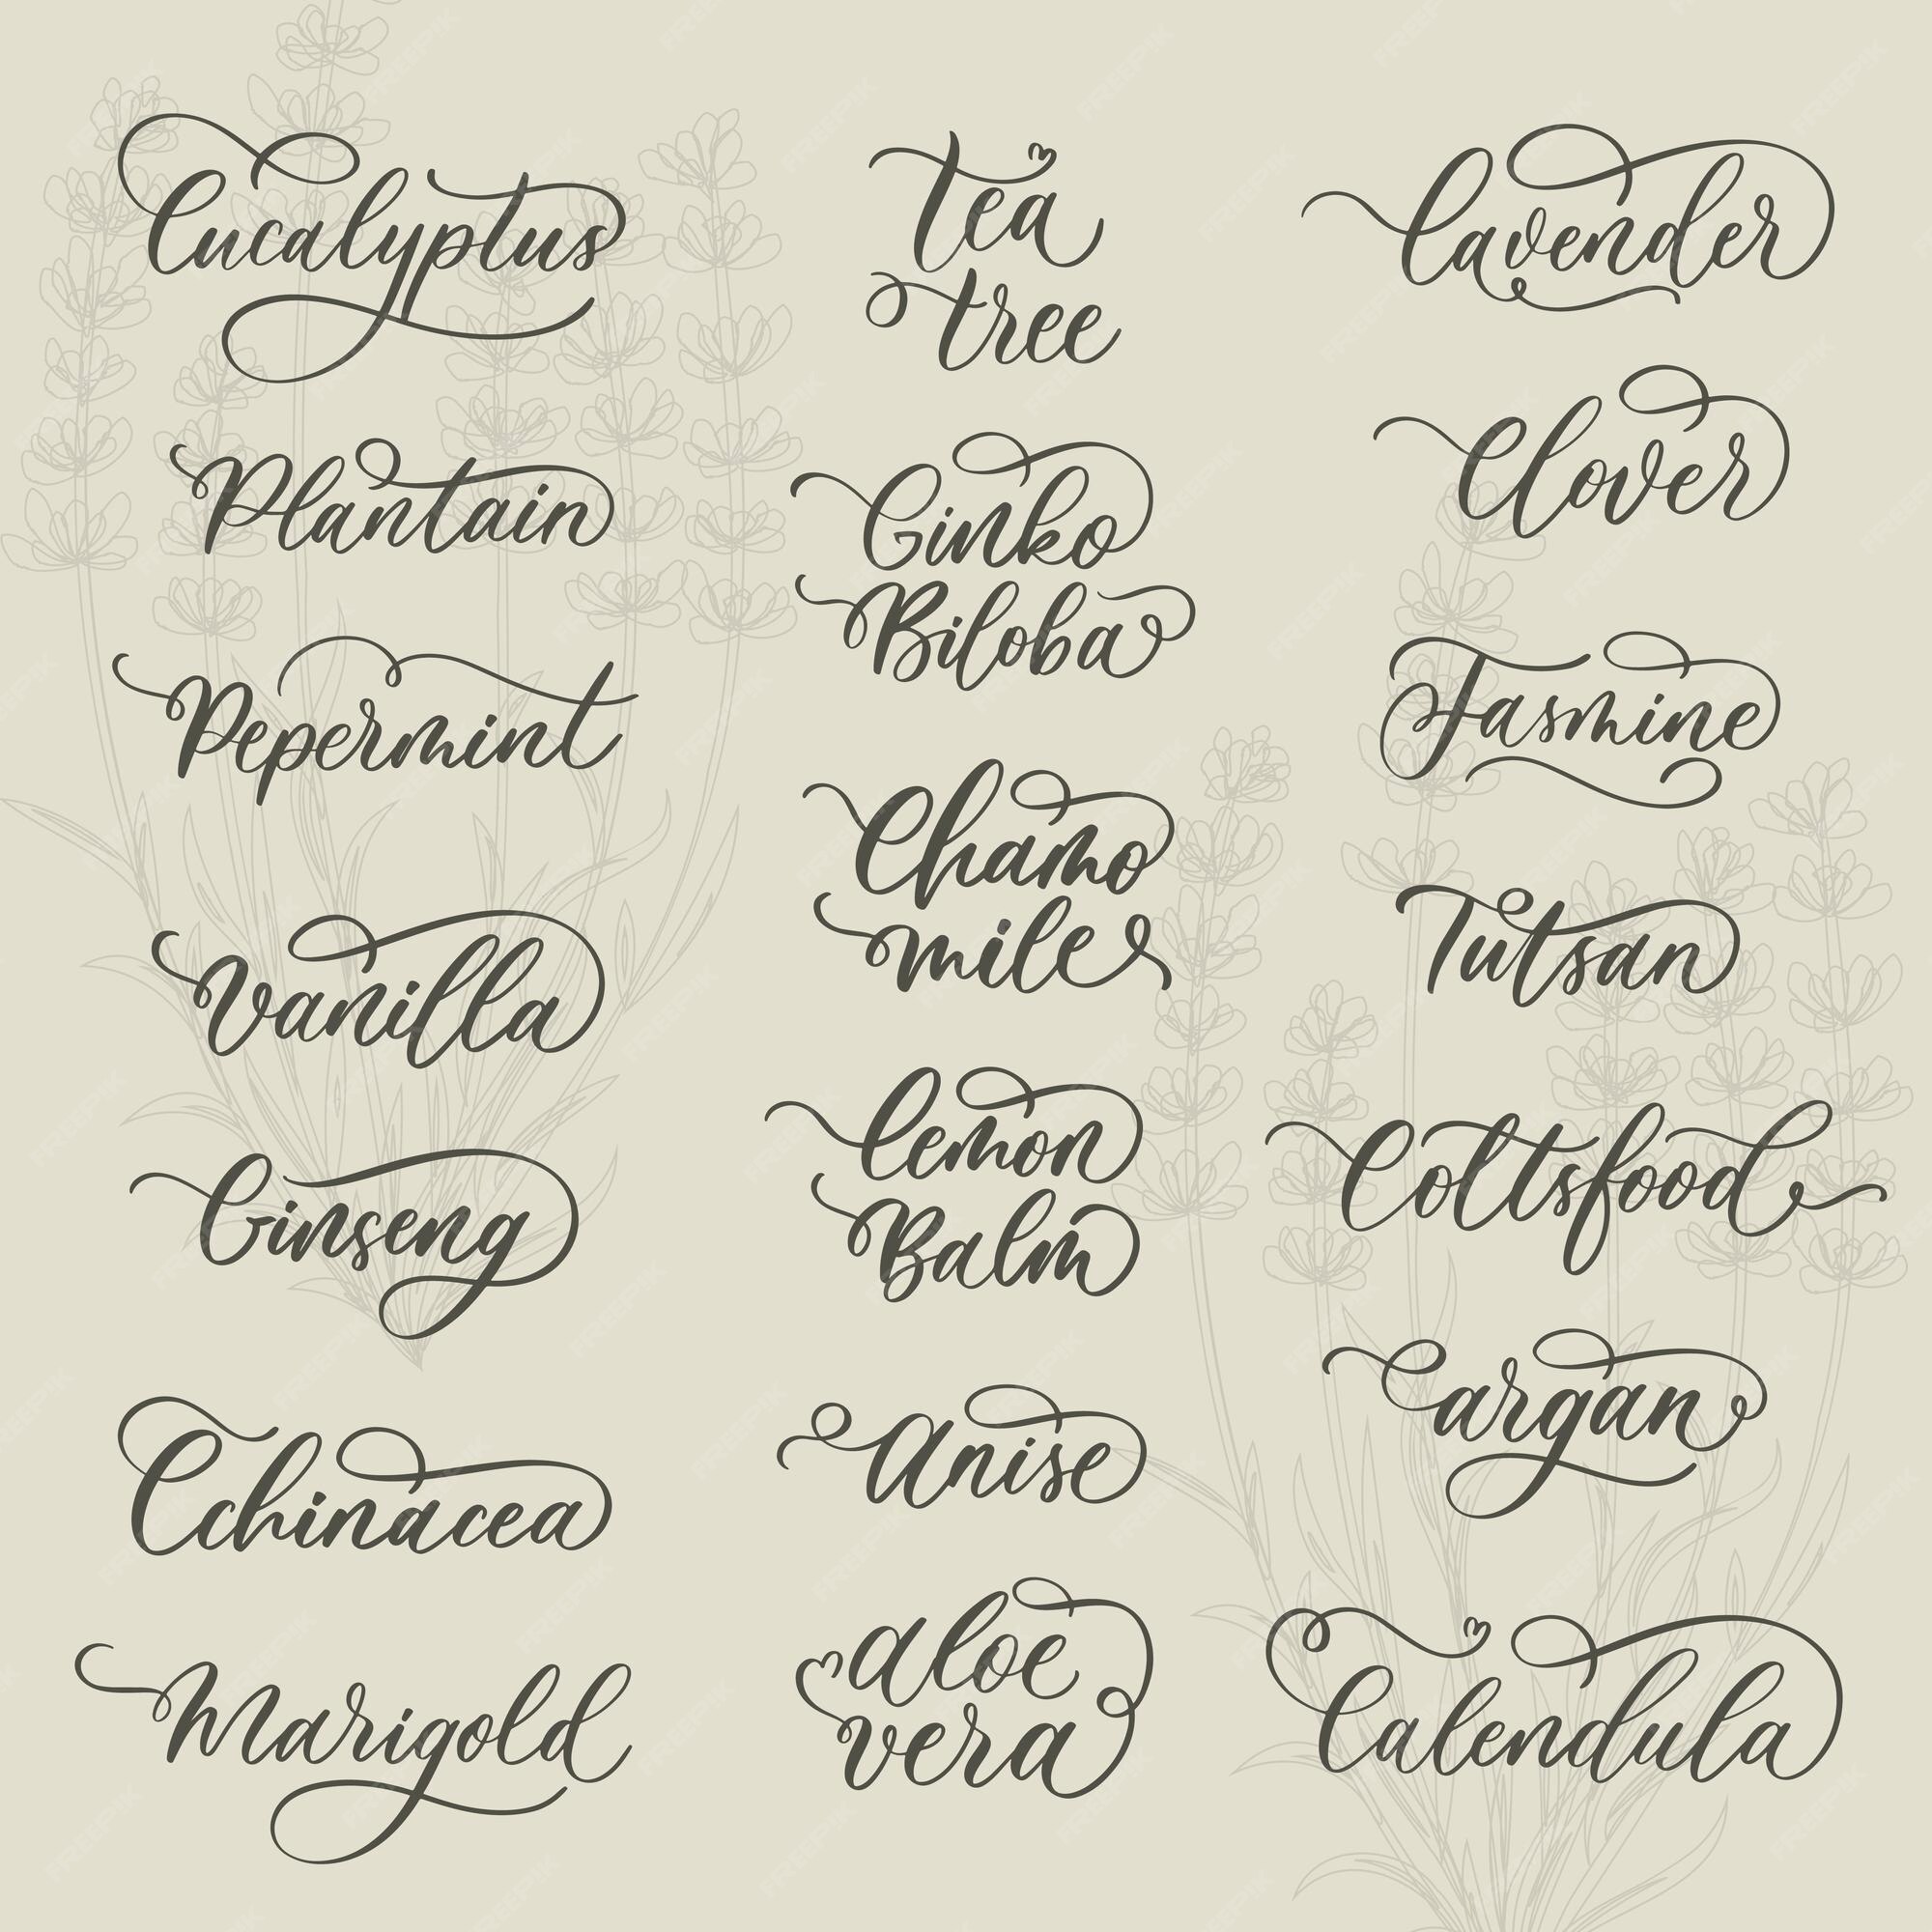 Eucalyptus
Plantain
Pepermint
Vanilla
Ginseng
Echinacea
Marigold
Tea
tree
Ginko
Biloba
Chamo
mile
Lemon
Balm
Anise
aloe
vera
Lavender
Clover
Jasmine
Tutsan
Coltsfood
argan
Calendula